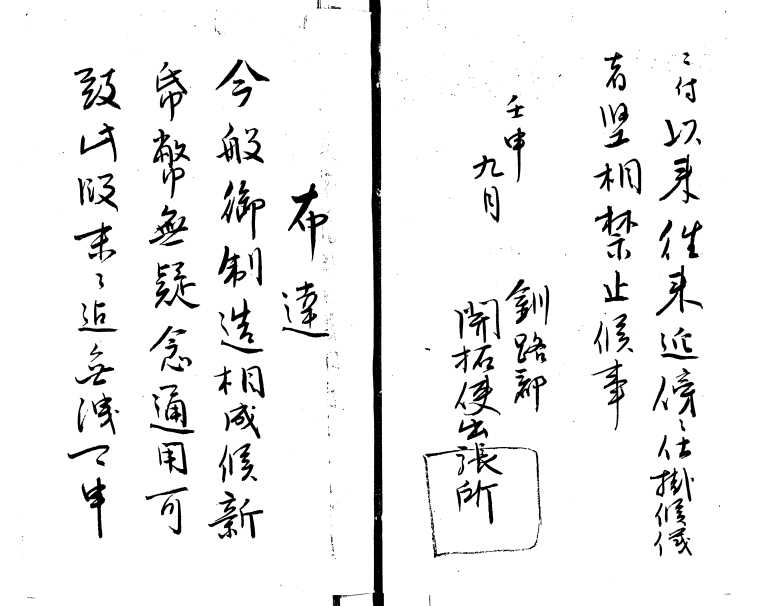 ミ付以来往来近傍ミ仕掛候儀
者堅相禁止候事
壬申
九月
釧路郡
開拓使出張所
布達
今般御制造相成候新
帋幣無疑念通用可
致此段末々迠無洩可申